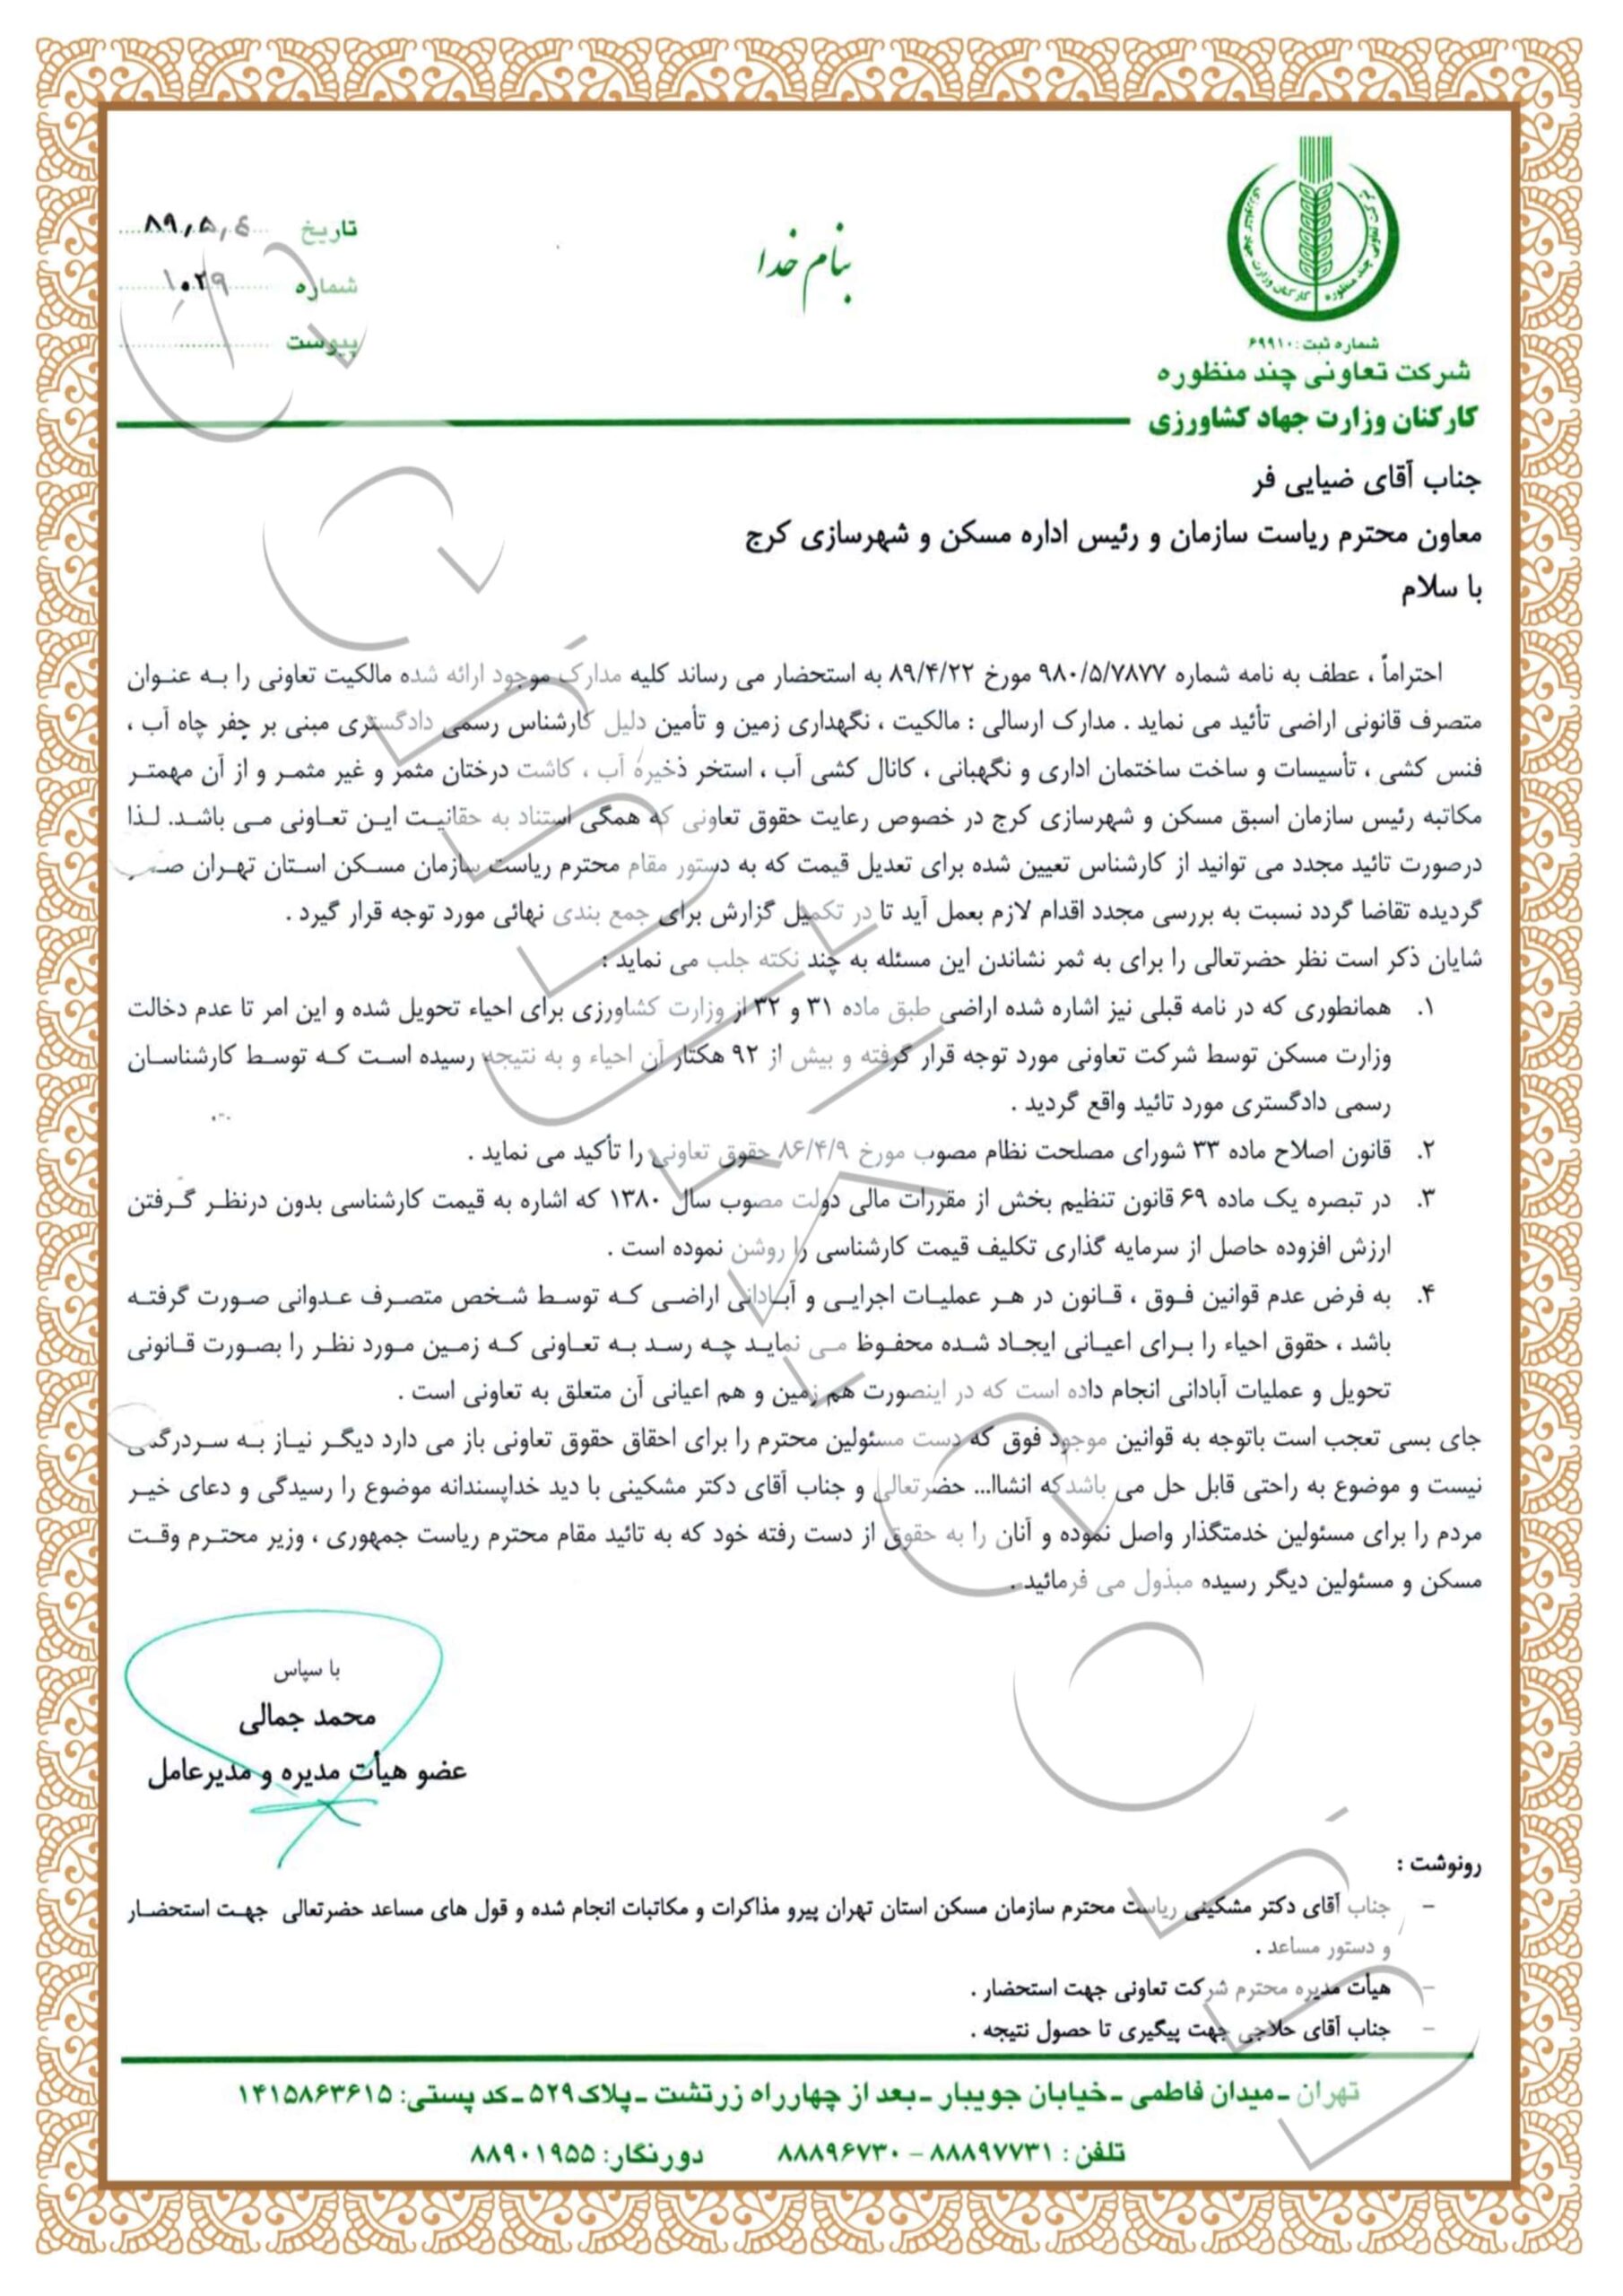 بنام خدا
تاریخ ۸۹،۵،۴
شماره ۱۰۲۹
پیوست
شماره ثبت: ۶۹۹۱۰
شرکت تعاونی چند منظوره
کارکنان وزارت جهاد کشاورزی
جناب آقای ضیایی فر
معاون محترم ریاست سازمان و رئیس اداره مسکن و شهرسازی کرج
با سلام
احتراماً ، عطف به نامه شماره ۹۸۰/۵/۷۸۷۷ مورخ ۸۹/۴/۲۲ به استحضار می رساند کلیه مدارک موجود ارائه شده مالکیت تعاونی را به عنوان
متصرف قانونی اراضی تأئید می نماید . مدارک ارسالی : مالکیت ، نگهداری زمین و تأمین دلیل کارشناس رسمی دادگستری مبنی بر حفر چاه آب ،
فنس کشی ، تأسیسات و ساخت ساختمان اداری و نگهبانی ، کانال کشی آب ، استخر ذخیره آب ، کاشت درختان مثمر و غیر مثمر و از آن مهمتر
مکاتبه رئیس سازمان اسبق مسکن و شهرسازی کرج در خصوص رعایت حقوق تعاونی که همگی استناد به حقانیت این تعاونی می باشد. لذا
درصورت تائید مجدد می توانید از کارشناس تعیین شده برای تعدیل قیمت که به دستور مقام محترم ریاست سازمان مسکن استان تهران صادر
گردیده تقاضا گردد نسبت به بررسی مجدد اقدام لازم بعمل آید تا در تکمیل گزارش برای جمع بندی نهائی مورد توجه قرار گیرد .
شایان ذکر است نظر حضرتعالی را برای به ثمر نشاندن این مسئله به چند نکته جلب می نماید :
۱. همانطوری که در نامه قبلی نیز اشاره شده اراضی طبق ماده ۳۱ و ۳۲ از وزارت کشاورزی برای احیاء تحویل شده و این امر تا عدم دخالت
وزارت مسکن توسط شرکت تعاونی مورد توجه قرار گرفته و بیش از ۹۲ هکتار آن احیاء و به نتیجه رسیده است که توسط کارشناسان
رسمی دادگستری مورد تائید واقع گردید .
۲. قانون اصلاح ماده ۳۳ شورای مصلحت نظام مصوب مورخ ۸۶/۴/۹ حقوق تعاونی را تأکید می نماید .
۳. در تبصره یک ماده ۶۹ قانون تنظیم بخش از مقررات مالی دولت مصوب سال ۱۳۸۰ که اشاره به قیمت کارشناسی بدون درنظر گرفتن
ارزش افزوده حاصل از سرمایه گذاری تکلیف قیمت کارشناسی را روشن نموده است .
۴. به فرض عدم قوانین فوق ، قانون در هر عملیات اجرایی و آبادانی اراضی که توسط شخص متصرف عدوانی صورت گرفته
باشد ، حقوق احیاء را برای اعیانی ایجاد شده محفوظ می نماید چه رسد به تعاونی که زمین مورد نظر را بصورت قانونی
تحویل و عملیات آبادانی انجام داده است که در اینصورت هم زمین و هم اعیانی آن متعلق به تعاونی است .
جای بسی تعجب است باتوجه به قوانین موجود فوق که دست مسئولین محترم را برای احقاق حقوق تعاونی باز می دارد دیگر نیاز به سردرگمی
نیست و موضوع به راحتی قابل حل می باشد که انشاا... حضرتعالی و جناب آقای دکتر مشکینی با دید خداپسندانه موضوع را رسیدگی و دعای خیر
مردم را برای مسئولین خدمتگذار واصل نموده و آنان را به حقوق از دست رفته خود که به تائید مقام محترم ریاست جمهوری ، وزیر محترم وقت
مسکن و مسئولین دیگر رسیده مبذول می فرمائید .
با سپاس
محمد جمالی
عضو هیأت مدیره و مدیرعامل
رونوشت :
– جناب آقای دکتر مشکینی ریاست محترم سازمان مسکن استان تهران پیرو مذاکرات و مکاتبات انجام شده و قول های مساعد حضرتعالی جهت استحضار
و دستور مساعد .
– هیأت مدیره محترم شرکت تعاونی جهت استحضار .
– جناب آقای حلاجی جهت پیگیری تا حصول نتیجه .
تهران ـ میدان فاطمی ـ خیابان جویبار ـ بعد از چهارراه زرتشت ـ پلاک ۵۲۹ ـ کد پستی: ۱۴۱۵۸۶۳۶۱۵
تلفن : ۸۸۸۹۷۷۳۱ – ۸۸۸۹۶۷۳۰ دورنگار: ۸۸۹۰۱۹۵۵